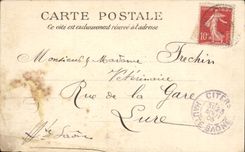 CARTE POSTALE
Ce côté est exclusivement réservé à l'adresse
10
Monsieur & Madame Fréchin
Vétérinaire
Rue de la Gare
Lure
Hte Saône
CITERS
HAUTE SAONE